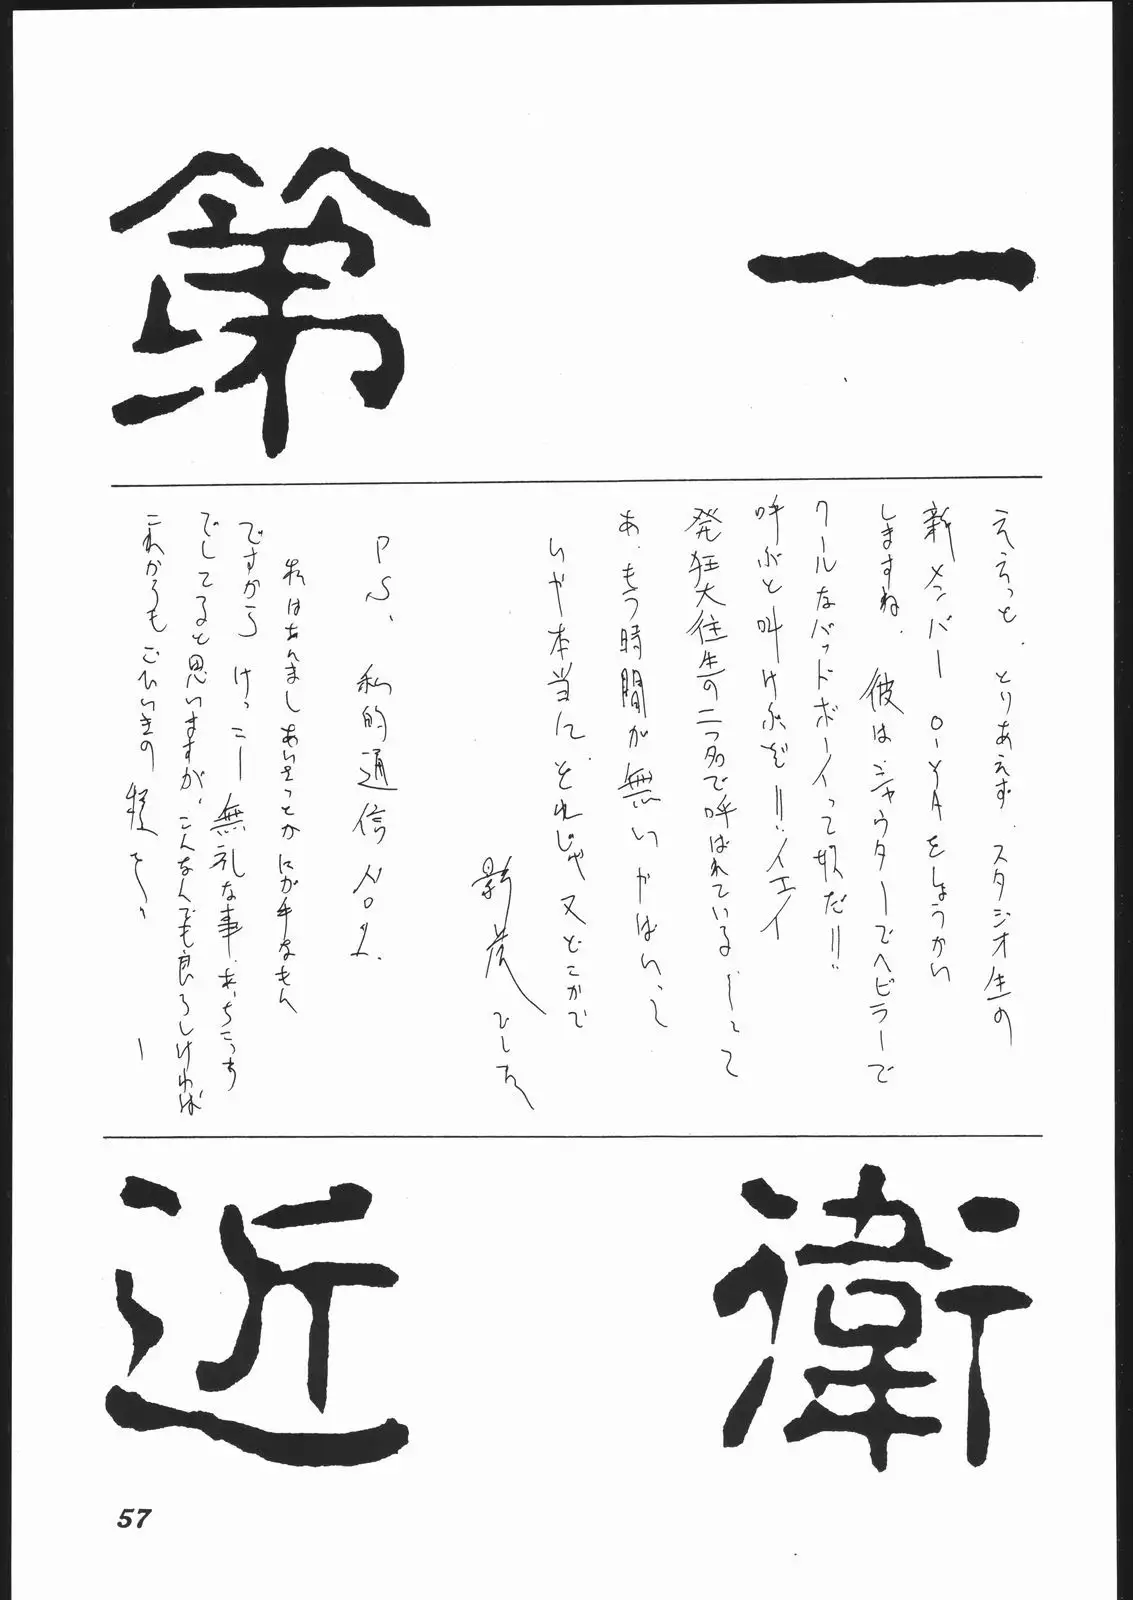 第一
ええっと、とりあえず、スタジオ生の
新メンバー O-YAをしょうかい
しますね、彼はシャウターでヘビラーで
クールなバッドボーイって奴だ!!
呼ぶと叫けぶぞ!!イエイ
発狂大往生の二つ名で呼ばれている
あ、もう時間が無いやばいっ
いや本当に、それじゃ又どこかで
影
PS、私的通信No1.
私はあんまし あいさつとかにが手なもん
ですから けっこー無礼な事、あっちこっち
でしてると思いますが、こんなんでも良ろしければ
これからもごひいきの程を〜
近衛
57